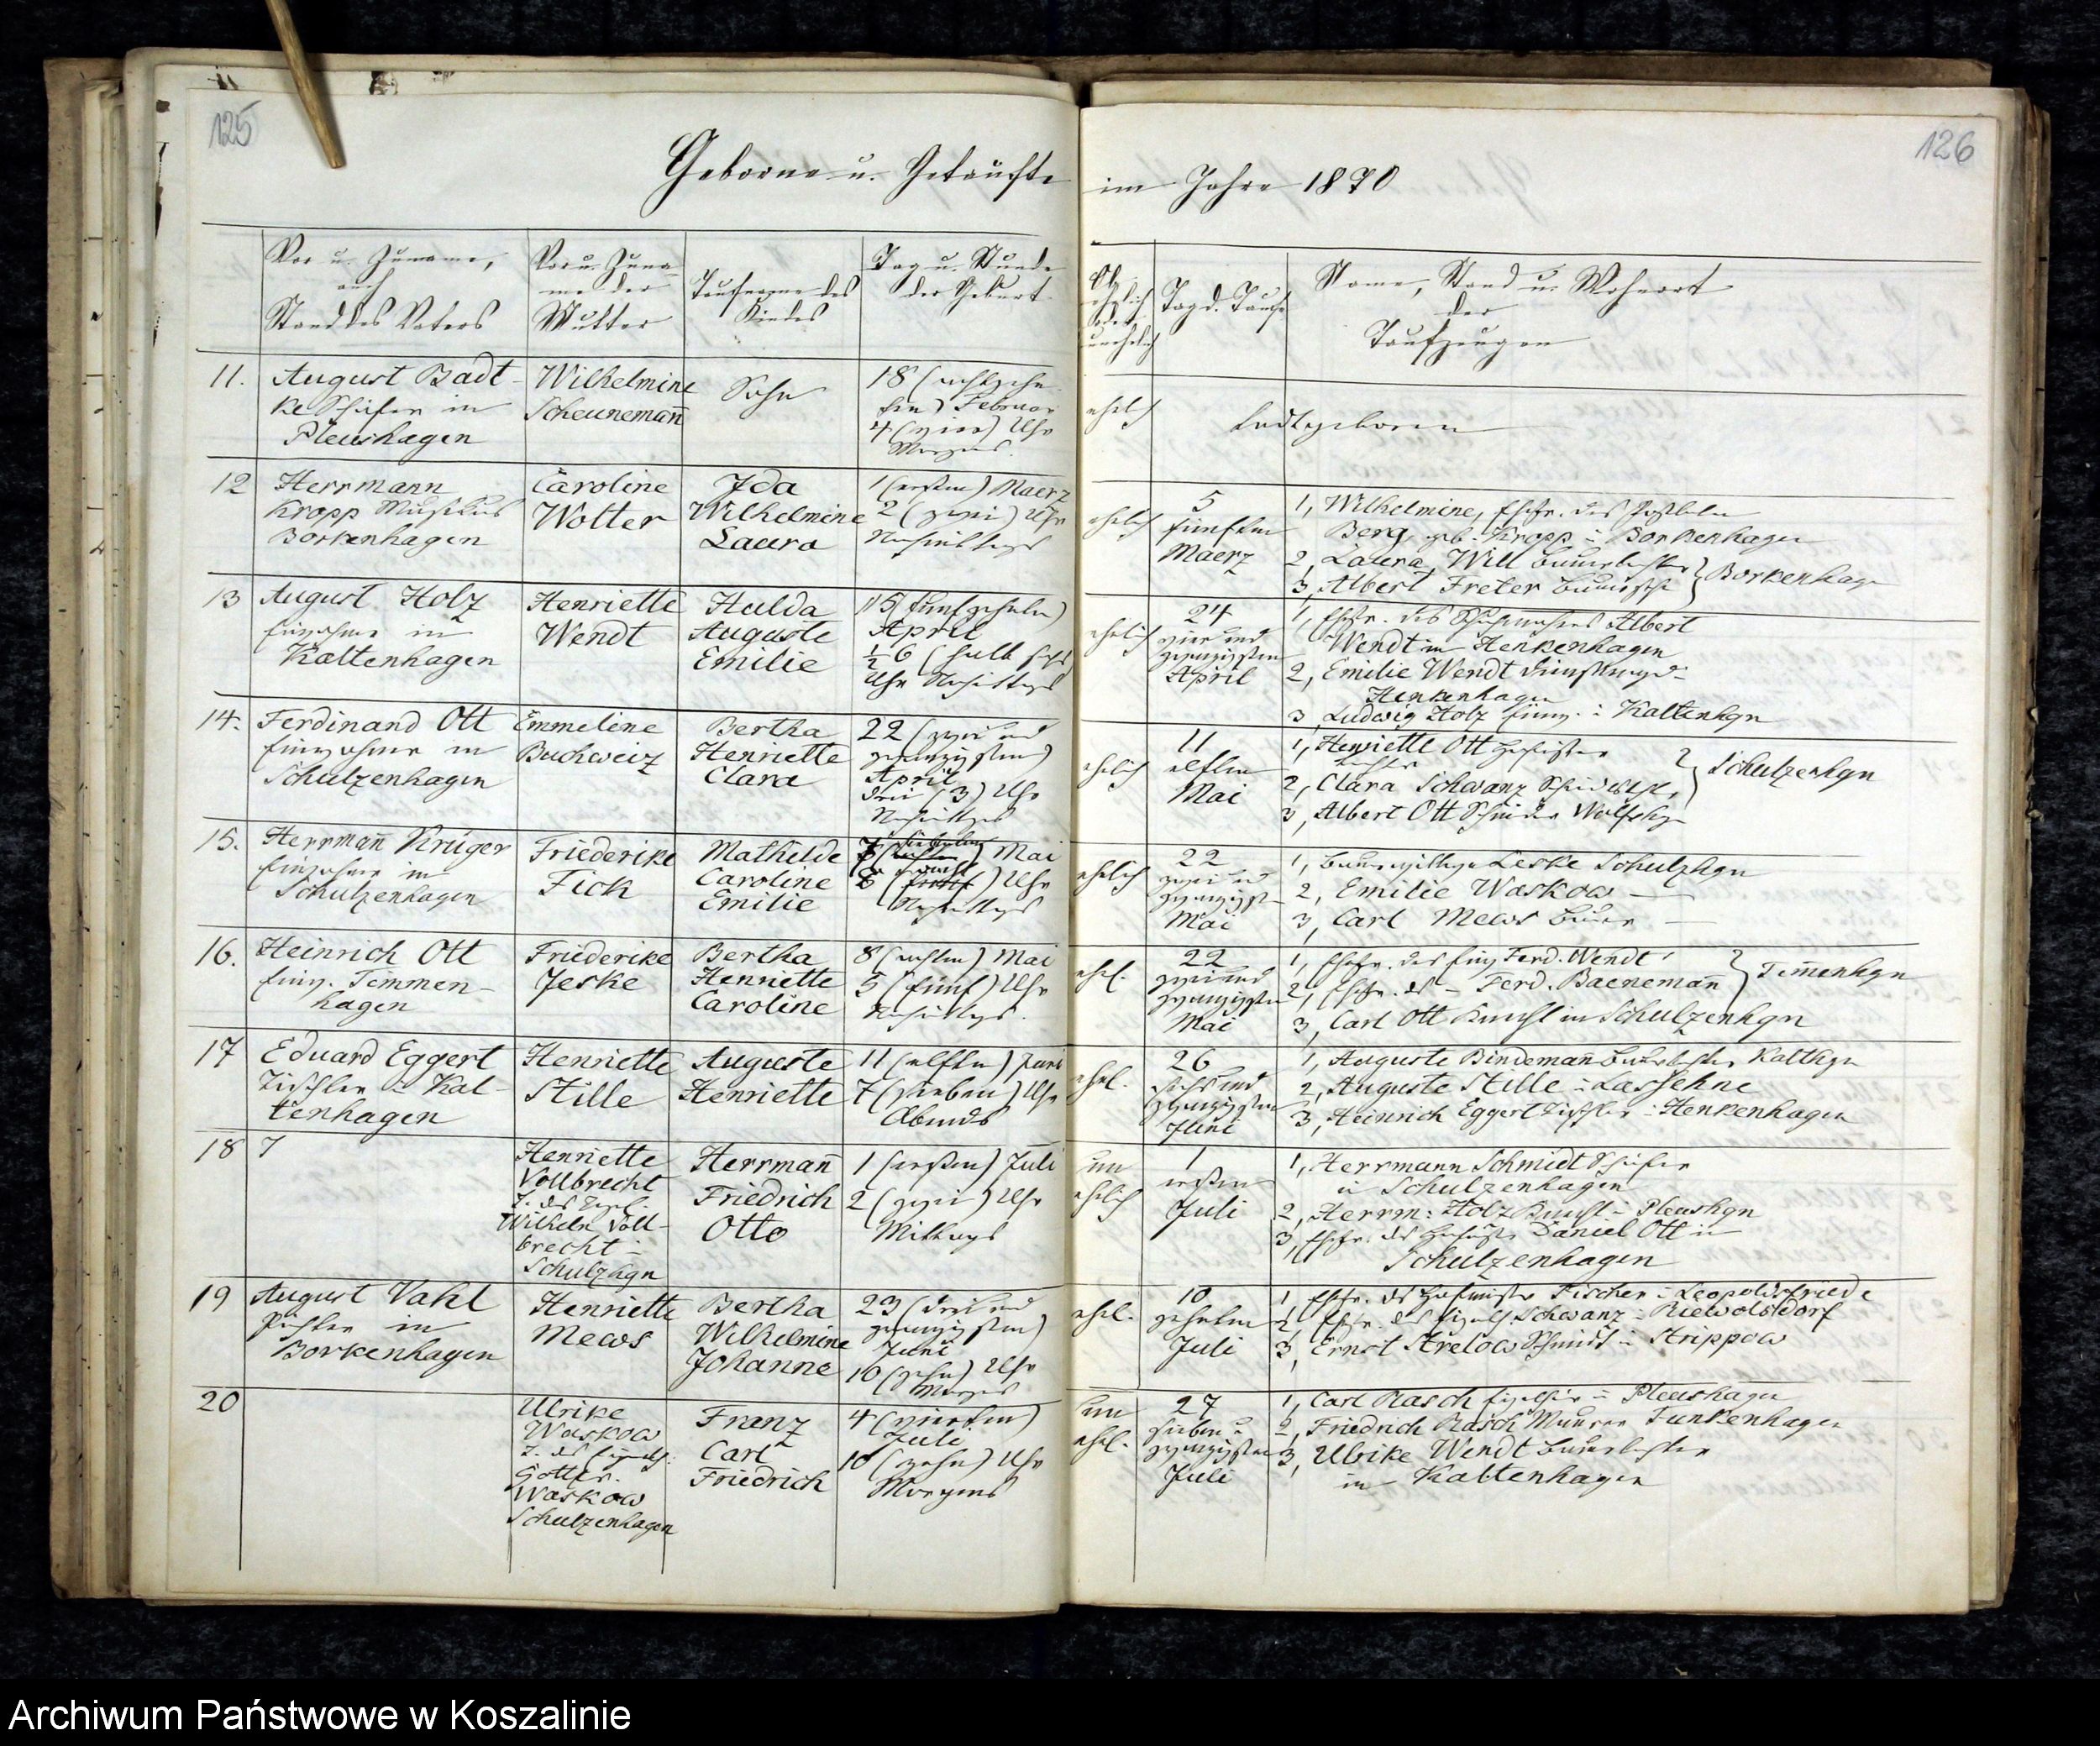 125
126
Geborne u. Getaufte im Jahre 1870
Vor u. Zuname,
auch
Stand des Vaters
Vor u. Zuna-
me der
Mutter
Taufname des
Kindes
Tag u. Stunde
der Geburt
Ob
ehelich
oder
unehelich
Tag d. Taufe
Name, Stand u. Wohnort
der
Taufzeugen
11.
August Badt-
ke Schäfer in
Pleushagen
Wilhelmine
Scheunemann̄
Sohn
18 (achtzehn
ten) Februar
4 (vier) Uhr
Morgens.
ehel
todtgeboren
12
Herrmann
Kropp Musikus
Borkenhagen
Caroline
Wolter
Ida
Wilhelmine
Laura
1 (ersten) Maerz
2 (zwei) Uhr
Nachmittags
ehelich
5
fünften
Maerz
1, Wilhelmine, Ehefr. des
Berg, geb. Kropp i Borkenhagen
2, Laura Will
3, Albert Freter
Borkenhagen
13
August Holz
Einwohner in
Kaltenhagen
Henriette
Wendt
Hulda
Auguste
Emilie
15 (fünfzehnten)
April
½ 6 (halb sechs
Uhr Nachmittags
ehelich
24
vier und
zwanzigsten
April
1, Ehefr. des Schuhmachers Albert
Wendt in Henkenhagen
2, Emilie Wendt
Henkenhagen
3 Ludwig Holz Einw. i Kaltenhgn
14.
Ferdinand Ott
Einwohner in
Schulzenhagen
Emmeline
Buchweiz
Bertha
Henriette
Clara
22 (zwei und
zwanzigsten)
April
drei (3) Uhr
Nachmittags
ehelich
11
elften
Mai
1, Henriette Ott
2, Clara Schwanz
3, Albert Ott
Schulzenhgn
15.
Herrman̄ Krüger
Einwohner in
Schulzenhagen
Friederike
Fick
Mathilde
Caroline
Emilie
7 siebenten) Mai
Uhr
Nachmittags
ehelich
22
zwei und
zwanzigst
Mai
1, Leske Schulzhgn
2, Emilie Waskow —
3, Carl Mews Bauer —
16.
Heinrich Ott
Einw. Timmen-
hagen
Friederike
Jeske
Bertha
Henriette
Caroline
8 (achten) Mai
5 (fünf) Uhr
Nachmittags.
ehel.
22
zwei und
zwanzigsten
Mai
1, Ehefr. des Einw Ferd. Wendt
2, Ehefr. ds – Ferd. Baeneman̄
3, Carl Ott Knecht in Schulzenhgn
Tim̄enhgn
17
Eduard Eggert
Tischler i Kal-
tenhagen
Henriette
Stille
Auguste
Henriette
11 (elften) Juni
7 (sieben) Uhr
Abends
ehel.
26
sechs und
zwanzigsten
Juni
1, Auguste Bindeman̄ Kalthgn
2, Auguste Stille i Lassehne
3, Heinrich Eggert Tischler i Henkenhagen
18
Henriette
Vollbrecht
Wilhelm Voll-
brecht i
Schulzhgn
Herrman̄
Friedrich
Otto
1 (ersten) Juli
2 (zwei) Uhr
Mittags
un
ehelich
1
ersten
Juli
1, Herrmann Schmidt Schäfer
in Schulzenhagen
2, Herrm: Holz Knecht i Pleushgn
3, Ehefr. ds Daniel Ott in
Schulzenhagen
19
August Vahl
Tischler in
Borkenhagen
Henriette
Mews
Bertha
Wilhelmine
Johanne
23 (drei und
zwanzigsten)
Juni
10 (zehn) Uhr
Morgens
ehel.
10
zehnten
Juli
1 Ehefr. ds Hofmeister Fischer i Leopoldsfriede
2 Ehefr. des Schwanz i Riewolsdorf
3, Ernst Strelow Schmidt i Strippow
20
Ulrike
Waskow
T. des
Gottfr.
Waskow
Schulzenhagen
Franz
Carl
Friedrich
4 (vierten)
Juli
10 (zehn) Uhr
Morgens
un
ehel.
27
sieben u
zwanzigsten
Juli
1, Carl Rasch i Pleushagen
2, Friedrich Rasch Maurer Funkenhagen
3, Ulrike Wendt
in Kaltenhagen
Archiwum Państwowe w Koszalinie